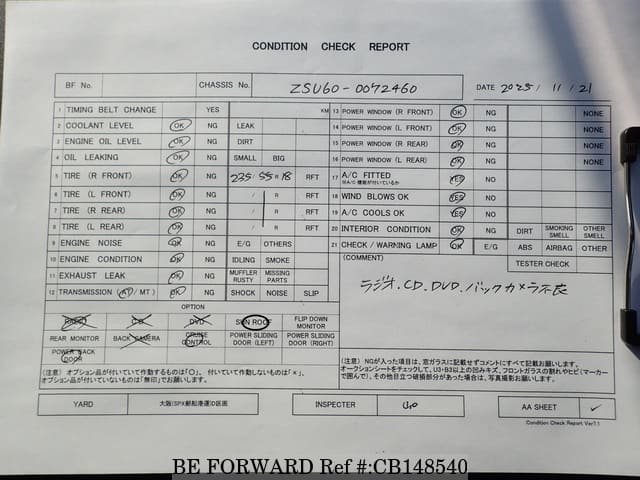 CONDITION CHECK REPORT
BF No. CHASSIS No. ZSU60-0072460 DATE 2025/11/21
1 TIMING BELT CHANGE YES KM
2 COOLANT LEVEL OK NG LEAK
3 ENGINE OIL LEVEL OK NG DIRT
4 OIL LEAKING OK NG SMALL BIG
5 TIRE (R FRONT) OK NG 235/55R18 RFT
6 TIRE (L FRONT) OK NG / R RFT
7 TIRE (R REAR) OK NG / R RFT
8 TIRE (L REAR) OK NG / R RFT
9 ENGINE NOISE OK NG E/G OTHERS
10 ENGINE CONDITION OK NG IDLING SMOKE
11 EXHAUST LEAK OK NG MUFFLER RUSTY MISSING PARTS
12 TRANSMISSION (AT/MT) OK NG SHOCK NOISE SLIP
OPTION
RADIO CD DVD SUN ROOF FLIP DOWN MONITOR
REAR MONITOR BACK CAMERA CRUISE CONTROL POWER SLIDING DOOR (LEFT) POWER SLIDING DOOR (RIGHT)
POWER BACK DOOR
(注意) オプション品が付いていて作動するものは「○」、付いていて作動しないものは「×」、
オプション品が付いていないものは「無印」でお願いします。
13 POWER WINDOW (R FRONT) OK NG NONE
14 POWER WINDOW (L FRONT) OK NG NONE
15 POWER WINDOW (R REAR) OK NG NONE
16 POWER WINDOW (L REAR) OK NG NONE
17 A/C FITTED YES NO
※A/C 機能が付いているか
18 WIND BLOWS OK YES NO
19 A/C COOLS OK YES NO
20 INTERIOR CONDITION OK NG DIRT SMOKING SMELL OTHER SMELL
21 CHECK / WARNING LAMP OK E/G ABS AIRBAG OTHER
(COMMENT) TESTER CHECK
ラジオ.CD.DVD.バックカメラ不良
(注意) NGが入った項目は、窓ガラスに記載せずコメントにすべて記載お願いします。
オークションシートをチェックして、U3・B3以上の凹みキズ、フロントガラスの割れやヒビ(マーカー
で囲んで)、その他目立つ破損部分があった場合は、写真撮影お願いします。
YARD 大阪(SPX郵船港運)D区画 INSPECTER AA SHEET ✓
Condition Check Report Ver1.1
BE FORWARD Ref #:CB148540